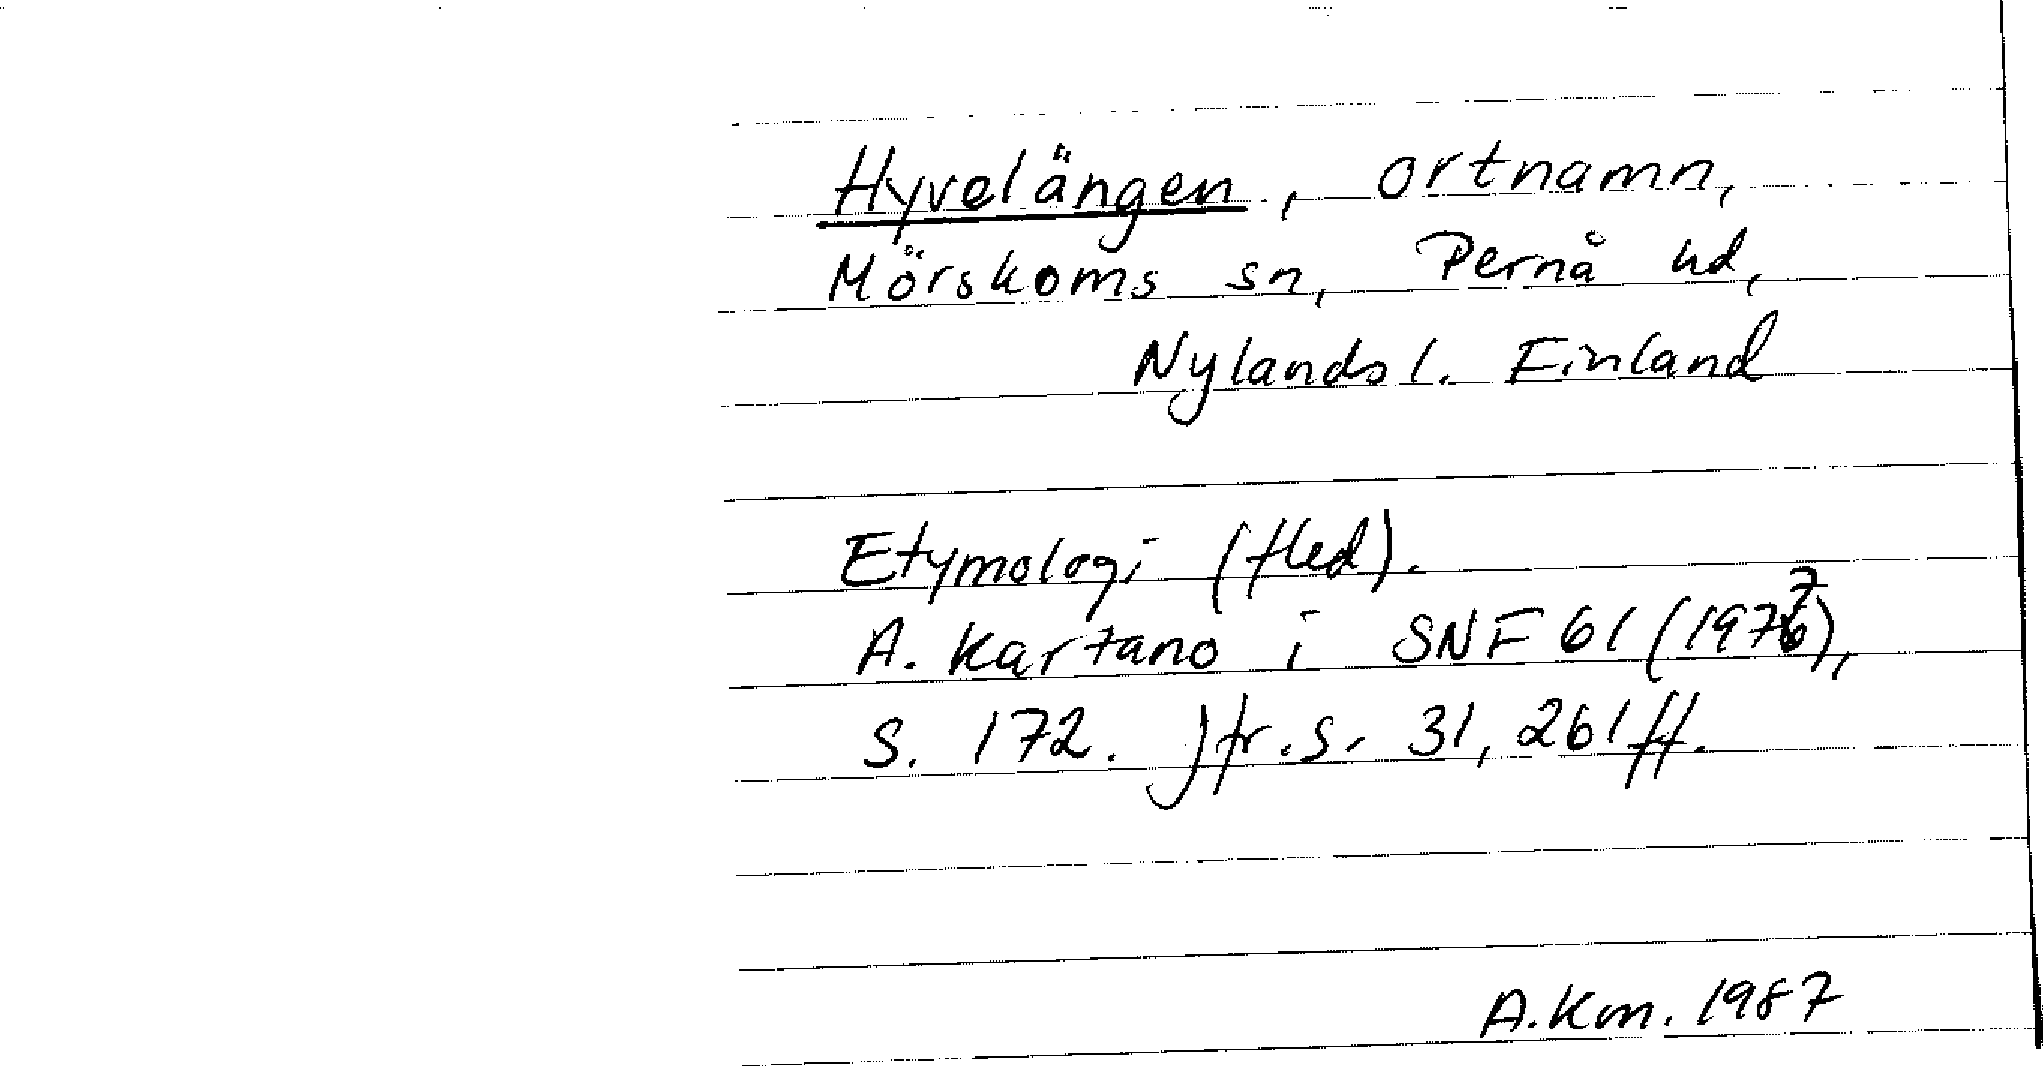 Hyvelängen, ortnamn,
Mörskoms sn, Pernå hd,
Nylands l. Finland
Etymologi (fled).
A. Kartano i SNF 61 (1977),
S. 172. Jfr. s. 31, 261 ff.
A.Km. 1987